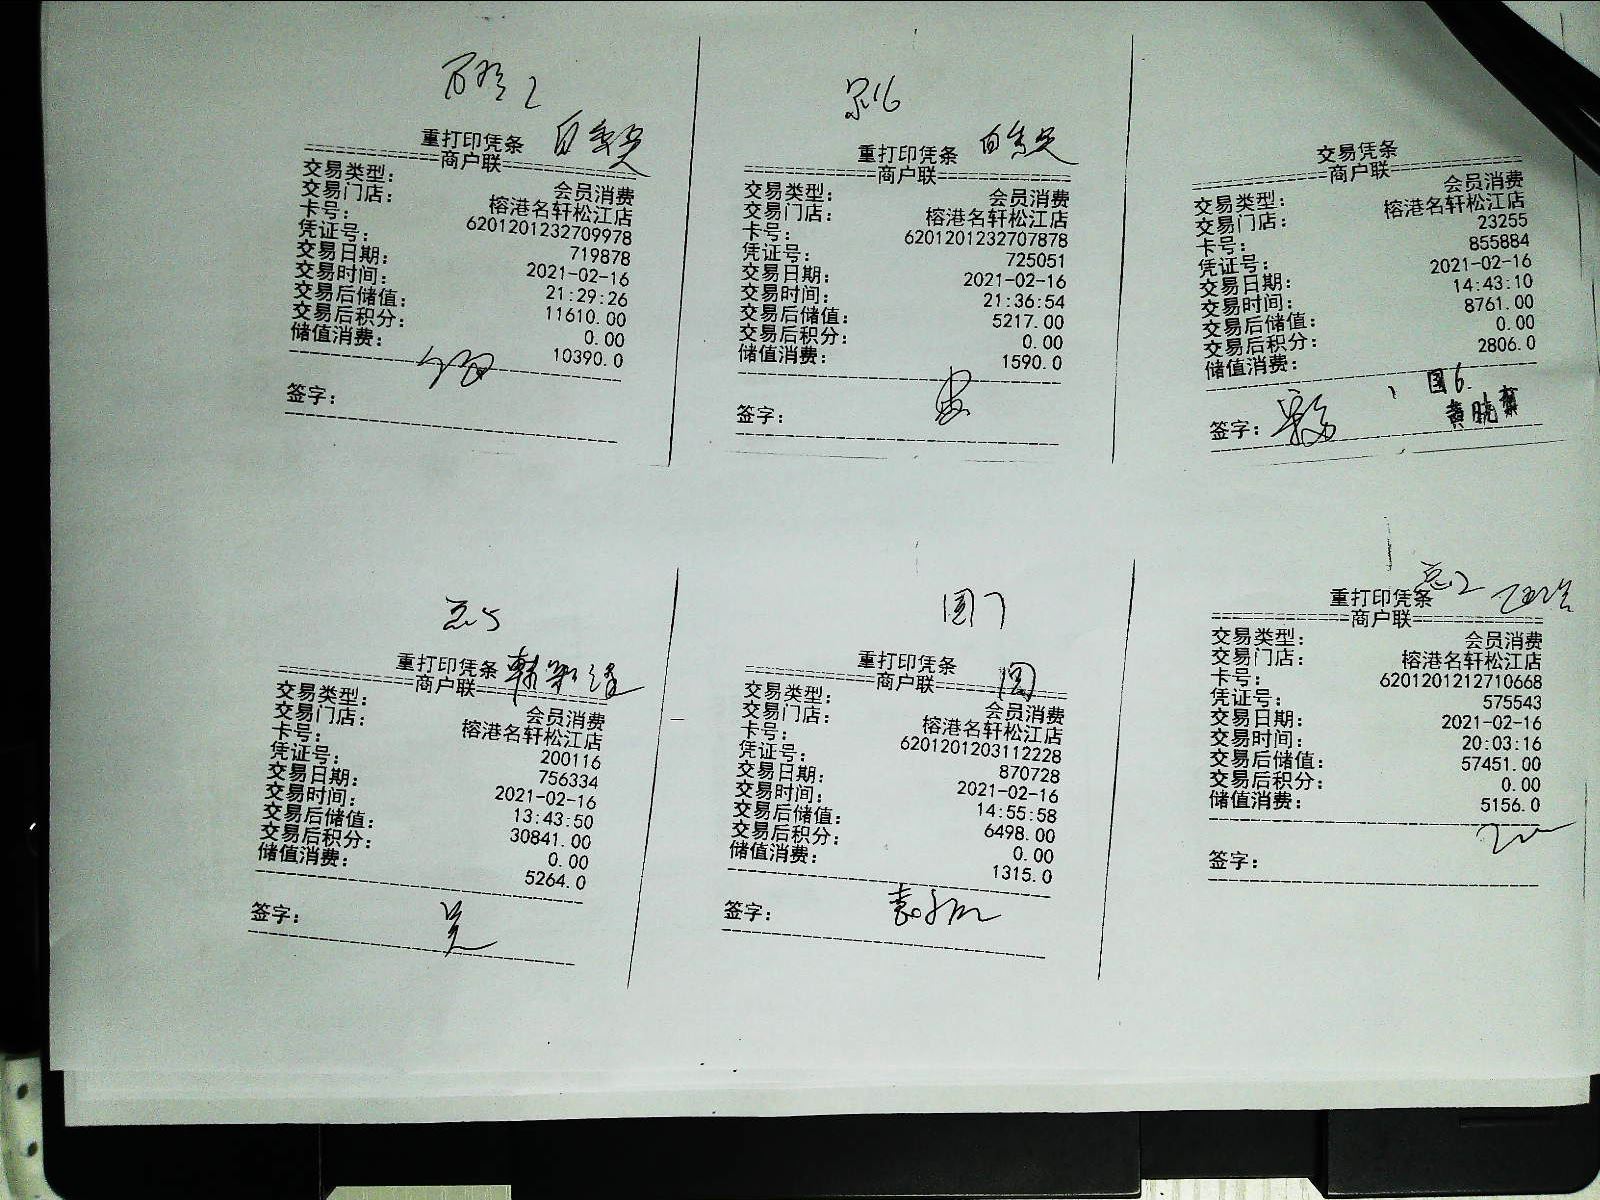 重打印凭条
商户联
交易类型: 会员消费
交易门店: 榕港名轩松江店
卡号: 6201201232709978
凭证号: 719878
交易日期: 2021-02-16
交易时间: 21:29:26
交易后储值: 11610.00
交易后积分: 0.00
储值消费: 10390.0
签字:
重打印凭条
商户联
交易类型: 会员消费
交易门店: 榕港名轩松江店
卡号: 6201201232707878
凭证号: 725051
交易日期: 2021-02-16
交易时间: 21:36:54
交易后储值: 5217.00
交易后积分: 0.00
储值消费: 1590.0
签字:
交易凭条
商户联
交易类型: 会员消费
交易门店: 榕港名轩松江店
卡号: 23255
凭证号: 855884
交易日期: 2021-02-16
交易时间: 14:43:10
交易后储值: 8761.00
交易后积分: 0.00
储值消费: 2806.0
国6.
签字:
重打印凭条
商户联
交易类型: 会员消费
交易门店: 榕港名轩松江店
卡号: 200116
凭证号: 756334
交易日期: 2021-02-16
交易时间: 13:43:50
交易后储值: 30841.00
交易后积分: 0.00
储值消费: 5264.0
签字:
国7
重打印凭条
商户联
交易类型: 会员消费
交易门店: 榕港名轩松江店
卡号: 6201201203112228
凭证号: 870728
交易日期: 2021-02-16
交易时间: 14:55:58
交易后储值: 6498.00
交易后积分: 0.00
储值消费: 1315.0
签字:
重打印凭条
商户联
交易类型: 会员消费
交易门店: 榕港名轩松江店
卡号: 6201201212710668
凭证号: 575543
交易日期: 2021-02-16
交易时间: 20:03:16
交易后储值: 57451.00
交易后积分: 0.00
储值消费: 5156.0
签字: